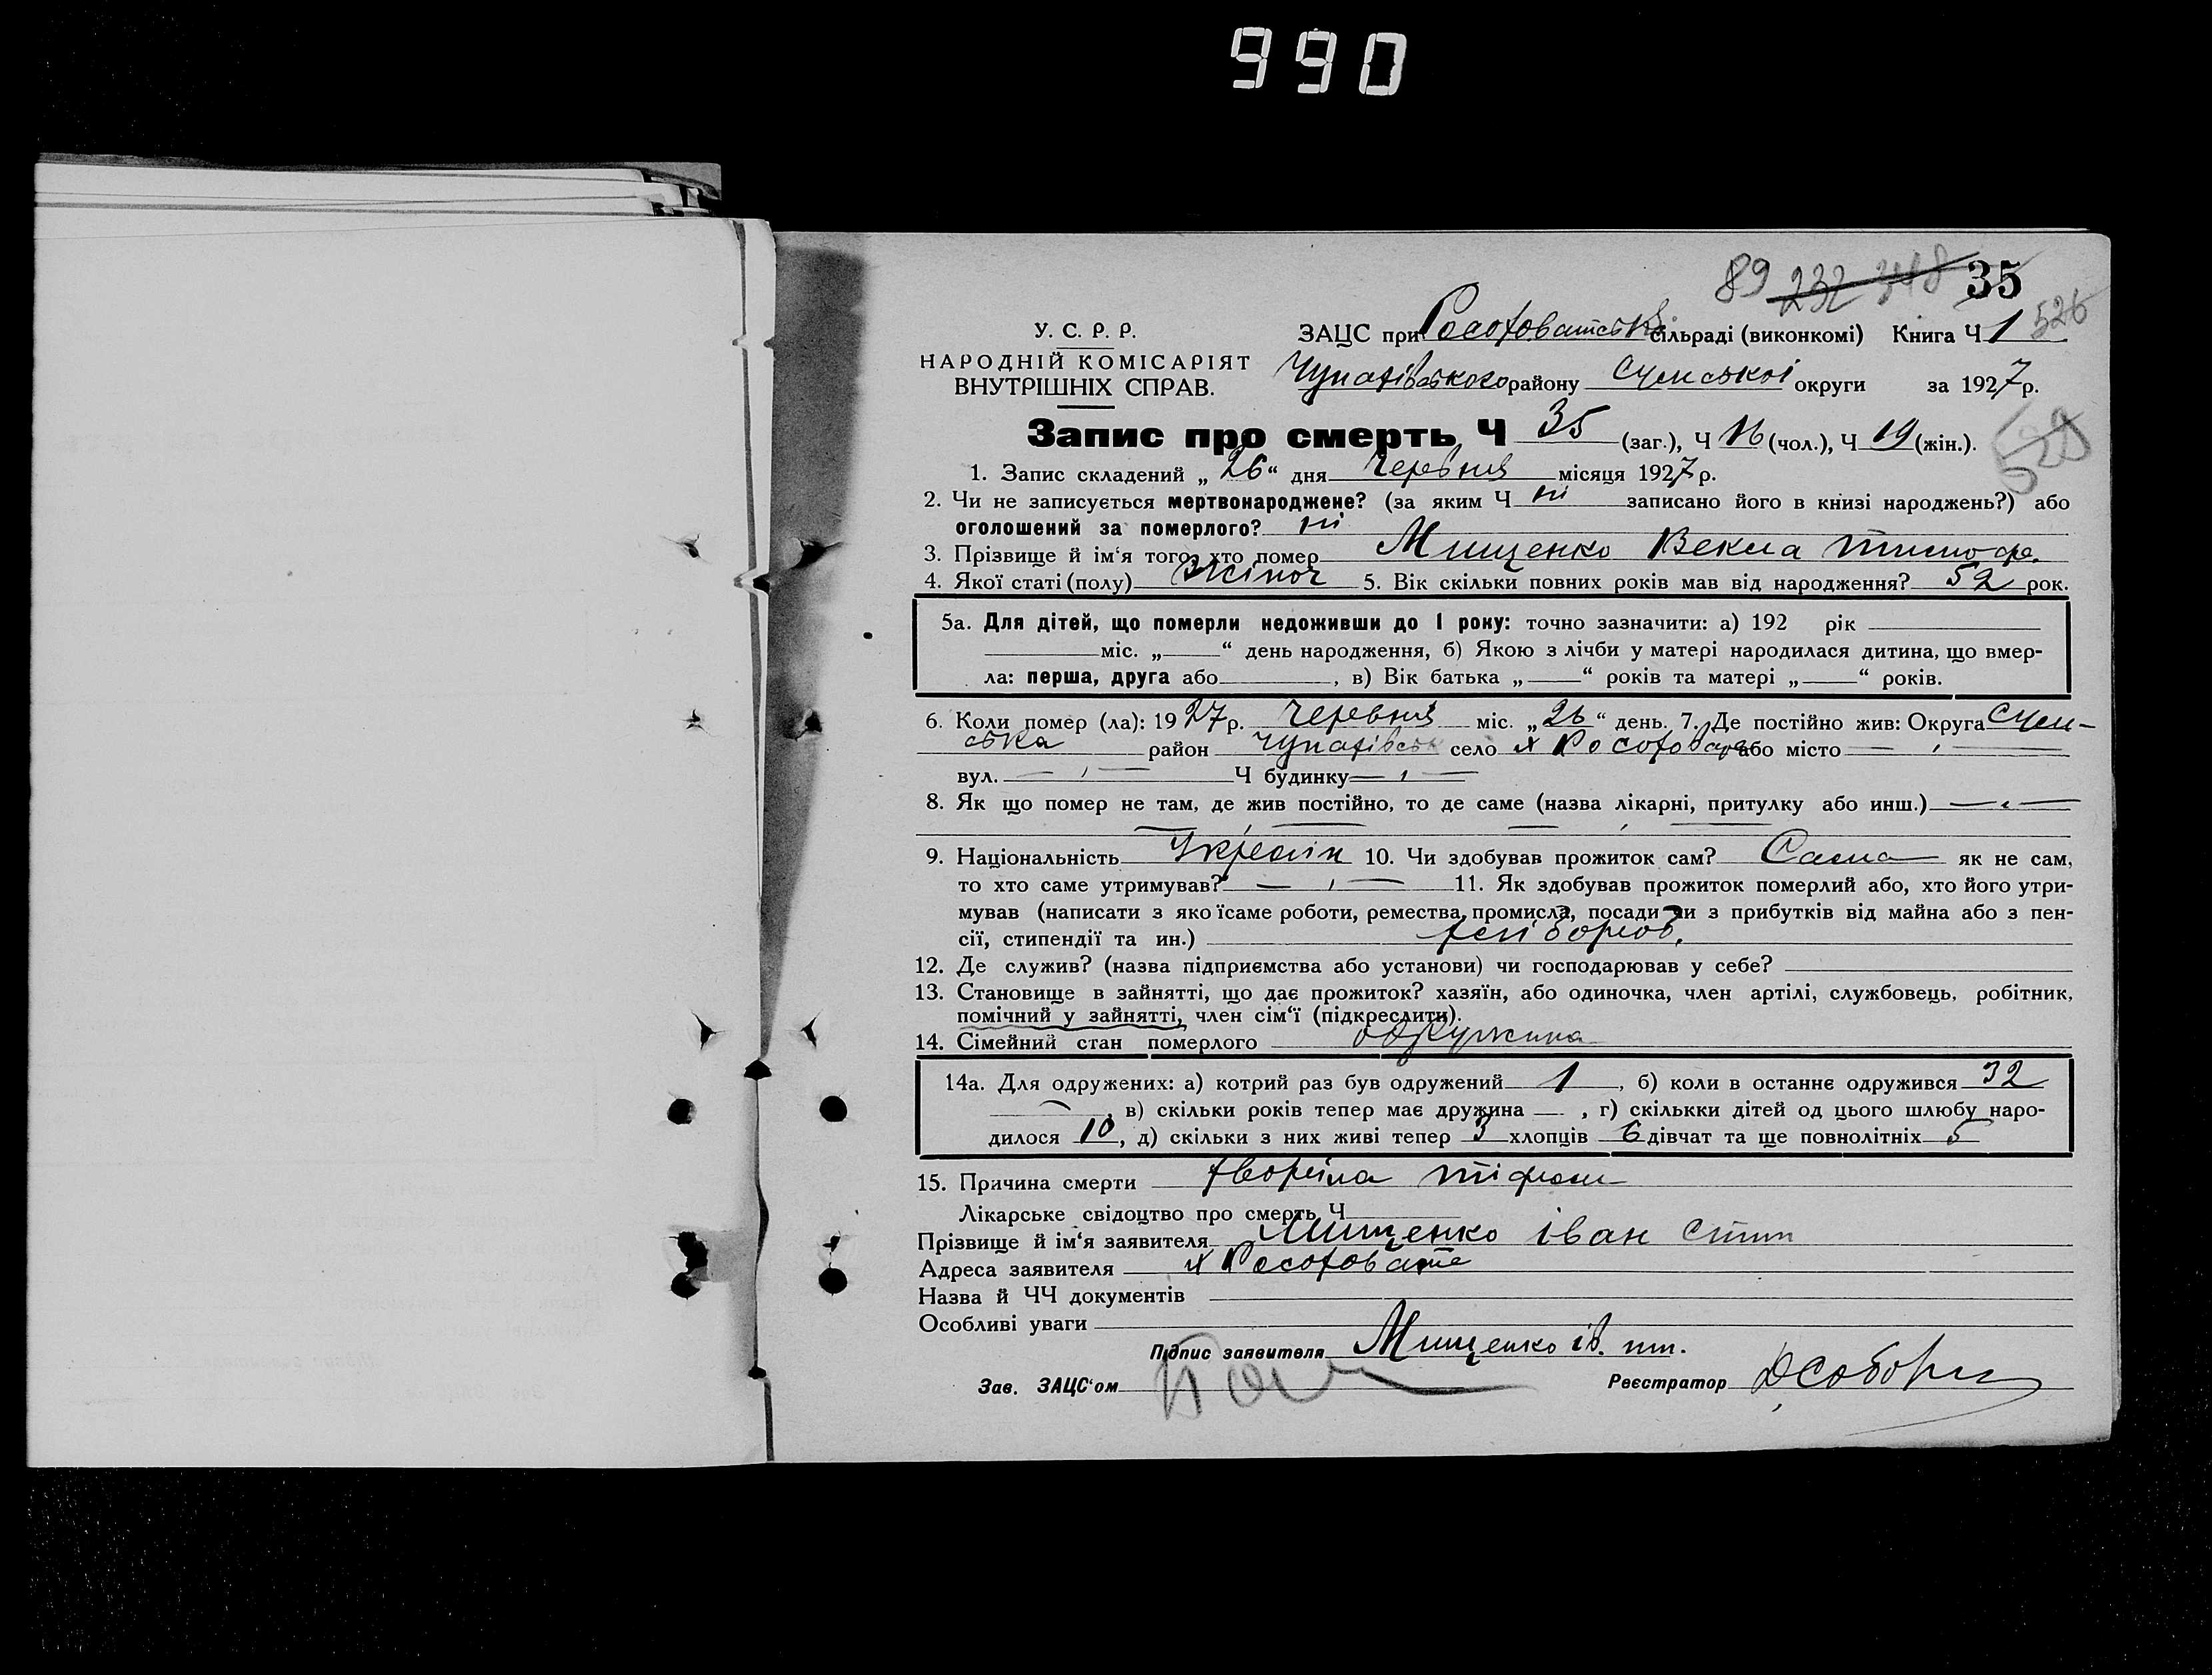 990
89 232 348 35
526
У. С. Р. Р.
НАРОДНІЙ КОМІСАРІЯТ
ВНУТРІШНІХ СПРАВ.
ЗАЦС при сільраді (виконкомі) Книга Ч 1
району Сумської округи за 1927 р.
Запис про смерть Ч 35 (заг.), Ч 16 (чол.), Ч 19 (жін.).
529
1. Запис складений „ 26 “ дня Червня місяця 1927 р.
2. Чи не записується мертвонароджене? (за яким Ч ні записано його в книзі народжень?) або
оголошений за померлого? ні
3. Прізвище й ім‘я того, хто помер Мищенко Векла Тимофе.
4. Якої статі (полу) жіноч 5. Вік скільки повних років мав від народження? 52 рок.
5а. Для дітей, що померли недоживши до 1 року: точно зазначити: а) 192 рік
міс. „ “ день народження, б) Якою з лічби у матері народилася дитина, що вмер-
ла: перша, друга або , в) Вік батька „ “ років та матері „ “ років.
6. Коли помер (ла): 19 27 р. Червня міс. „ 26 “ день. 7. Де постійно жив: Округа Сум-
ська район село х або місто
вул. Ч будинку
8. Як що помер не там, де жив постійно, то де саме (назва лікарні, притулку або инш.)
9. Національність 10. Чи здобував прожиток сам? Сама як не сам,
то хто саме утримував? 11. Як здобував прожиток померлий або, хто його утри-
мував (написати з якоїсаме роботи, ремества, промисла, посади чи з прибутків від майна або з пен-
сії, стипендії та ин.) хліборов.
12. Де служив? (назва підприємства або установи) чи господарював у себе?
13. Становище в зайнятті, що дає прожиток? хазяїн, або одиночка, член артілі, службовець, робітник,
помічний у зайнятті, член сім‘ї (підкреслити).
14. Сімейний стан померлого одружина
14а. Для одружених: а) котрий раз був одружений 1 , б) коли в останнє одружився 32
, в) скільки років тепер має дружина — , г) скількки дітей од цього шлюбу наро-
дилося 10 , д) скільки з них живі тепер 3 хлопців 6 дівчат та ще повнолітніх 5
15. Причина смерти хворіла тіфом
Лікарське свідоцтво про смерть Ч
Прізвище й ім‘я заявителя Мищенко іван
Адреса заявителя х
Назва й ЧЧ документів
Особливі уваги
Підпис заявителя Мищенко ів.
Зав. ЗАЦС‘ом
Реєстратор